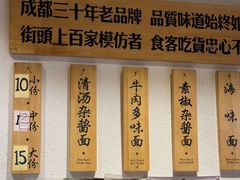 成都三十年老品牌 品質味道始終如
街頭上百家模仿者 食客吃貨忠心不
10 小份
12 中份
15 大份
清汤杂酱面
牛肉多味面
素椒杂酱面
海味面